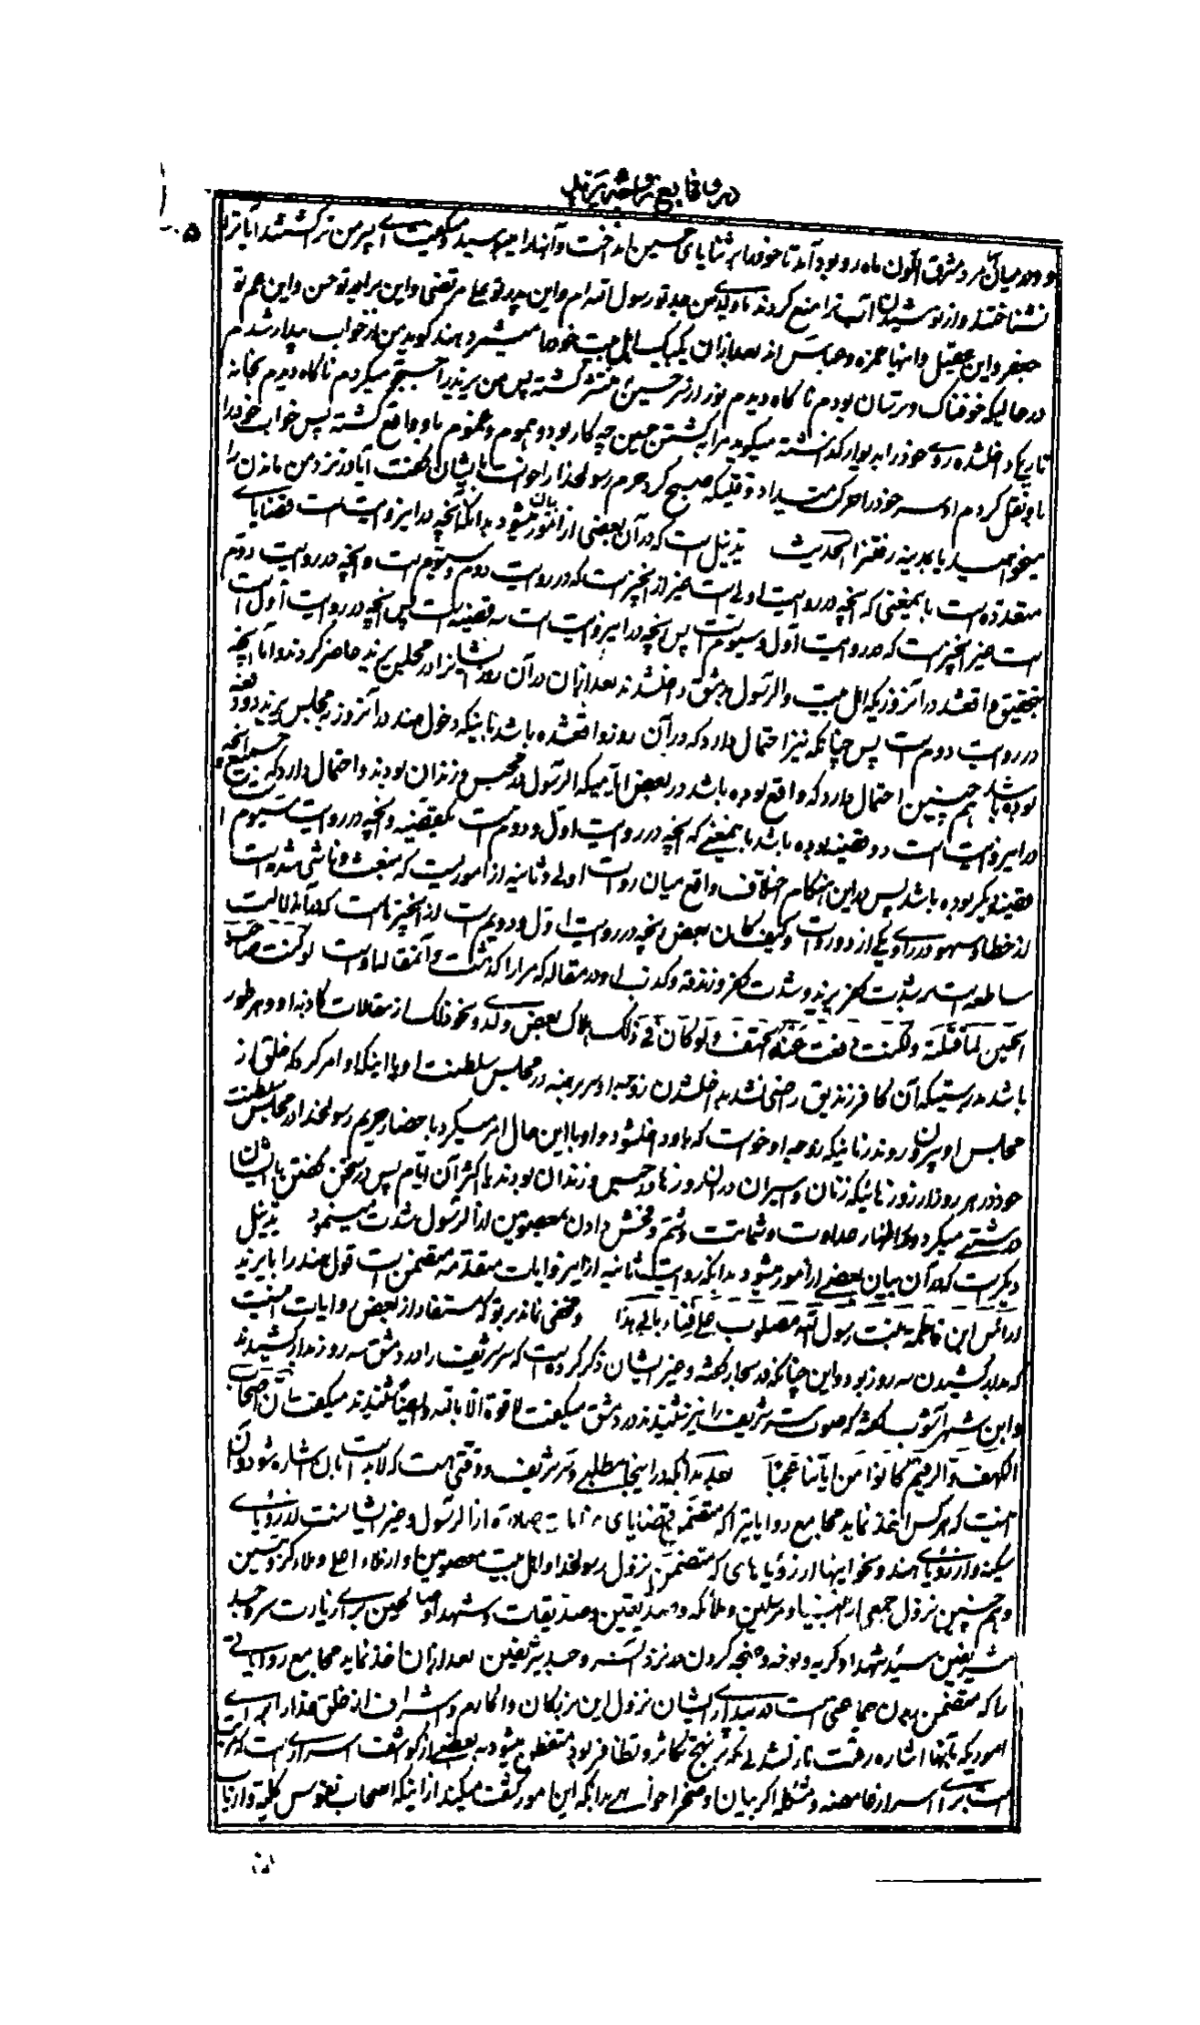 در وقایع
نشناختند و از نوشیدن آب ترا منع کردند من جد تو رسول الله ام و این پدر تو علی مرتضی و این برادر تو حسن و این عم تو
جعفر و این عقیل و اینها حمزه و عباس اند بعد از آن یک یک اهل بیت خود را میشمرد هند گوید من از خواب بیدار شدم
در حالیکه خوفناک و ترسان بودم ناگاه دیدم نور از سر حسین منتشر گشته پس من یزید را جستجو میکردم ناگاه دیدم بخانه
تاریک داخلشده روی خود را بدیوار گذاشته میگوید مرا بکشتن حسین چه کار بود و هموم و غموم باو واقع گشته پس خواب خود را
باو نقل کردم او سر خود را حرکت میداد وقتیکه صبح کرد حرم رسولخدا را خواست بایشان گفت آیا در نزد من ماندن را
میخواهید یا بمدینه رفتن را الحدیث تذییل است که در آن بعضی از امور بیان میشود بدانکه آنچه در این روایت است قضایای
متعدده است باینمعنی که آنچه در روایت اولی است غیر از آنچیز است که در روایت دوم و سیوم است و آنچه در روایت دوم
است غیر آنچیز است که در روایت اول و سیوم است پس آنچه در این روایت است سه قضیه است پس آنچه در روایت اول است
بتحقیق واقعشد در آنروزیکه اهل بیت و آل رسول بدمشق داخلشدند بعد از آن در آن روز ایشانرا در مجلس یزید حاضر کردند و اما آنچه
در روایت دوم است پس چنانکه نیز احتمال دارد که در آن روز واقعشده باشد باینکه دخول هند در آنروز بمجلس یزید دو دفعه
بوده باشد هم چنین احتمال دارد که واقع بوده باشد در بعض ایامیکه آل رسول در محبس و زندان بودند و احتمال دارد که جمیع آنچه
در این روایت است دو قضیه بوده باشد باینمعنی که آنچه در روایت اول و دوم است یکقضیه و آنچه در روایت سیوم است
قضیه دیگر بوده باشد پس در این هنگام اختلاف واقع میان روایت اولی و ثانیه از اموریست که منبعث و ناشی شده است
از خطا و سهو در راوی یکی از دو روایت و کیف کان بعض آنچه در روایت اول و دویم است از آنچیزهاست که در آن دلالت
ساطعه است بر شدت کفر یزید و شدت کفر و زندقه و کذب او در مقاله که مرارا گذشت و آنمقاله اوست لو کنت صاحب
الحسین لما قتلته ولکنت دفعت عنه الحتف ولو کان فی ذلک هلاک بعض ولدی و نحو ذلک از مقالات کاذبه او و هر طور
باشد بدرستیکه آن کافر زندیق راضی نشد بداخلشدن زوجه او سر برهنه در مجلس سلطنت او با اینکه او امر کرد که خلق از
مجلس او بیرون روند زمانیکه زوجه او خواست که باو داخلشود و او با این حال امر میکرد باحضار حریم رسولخدا در مجلس سلطنت
خود در هر روز از روزهائیکه زنان و اسیران در آن روزها در حبس و زندان بودند یا اکثر آن ایام پس در سخن گفتن بایشان
درشتی میکرد و اظهار عداوت و شماتت و شتم و فحش دادن بمعصومین از آل رسول بشدت مینمود تذییل
دیگریست که در آن بیان بعضی از امور میشود بدانکه روایت ثانیه از این روایات متقدمه متضمن است قول هند را یا یزید
اراس ابن فاطمة بنت رسول الله مصلوب علی فناء بابی هذا و مخفی نماند بر تو که مستفاد از بعض روایات اینست
که بدار کشیدن سه روز بود و این چنانکه در بحار گفته و غیر ایشان ذکر کرده است که سر شریف را در دمشق سه روز بدار کشیدند
و ابن شهر آشوب گفته که صوت سر شریف را نیز شنیدند در دمشق میگفت لا قوة الا بالله و ایضا شنیدند میگفت ان اصحاب
الکهف و الرقیم کانوا من آیاتنا عجبا بعد بدانکه در اینجا مطلبی و سر شریف و وقتی هست که لابد است بآن اشاره شود و آن
اینست که هر کس اخذ نماید مجامع روایاتیرا که متضمنه بقضایای صادره از آل رسول و غیر ایشانست از رؤیای
سکینه و از رؤیای هند و نحو اینها از رؤیاهای که متضمن نزول رسولخدا و اهل بیت معصومین او از ملاء اعلی و ملاء کروبیین
و هم چنین نزول جمعی از انبیاء و مرسلین و ملائکه و صدیقین و صدیقات و شهدا و صالحین برای زیارت سر و جسد
شریفین سید شهدا و گریه و نوحه و ضجه کردن در نزد سر و جسد شریفین بعد از آن اخذ نماید مجامع روایاتی
را که متضمن بودن جماعتی است در بیداری ایشان نزول این بزرگان و اکارم و اشراف از خلق خدا را برای
امور یکه بآنها اشاره رفت نازلشدند بر نهج تکاثر و تظافر بودن متفطن میشود به بعضی از کواشف اسراری است که
است برای اسرار غامضه و مشکله اگر بیان واضحتر خواهی بدانکه این امور کشف میکند از اینکه اصحاب نفوس کلیه و ارباب